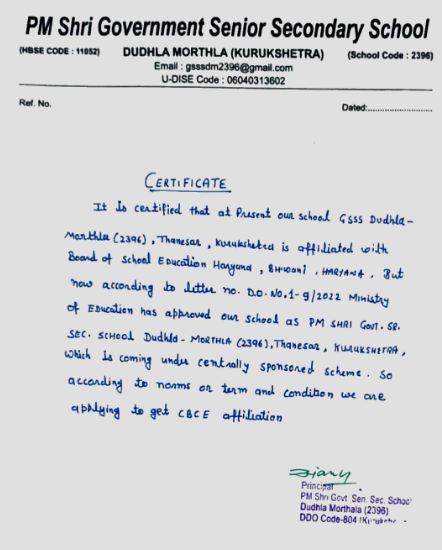 PM Shri Government Senior Secondary School
(HBSE CODE : 11052) DUDHLA MORTHLA (KURUKSHETRA) (School Code : 2396)
Email : gsssdm2396@gmail.com
U-DISE Code : 06040313602
Ref. No. Dated:......................
CERTIFICATE
It Is certified that at Present our school GSSS Dudhla-
Morthla (2396), Thanesar, Kurukshetra is affiliated with
Board of School Education Haryana, BHIWANI, HARYANA. But
now according to letter no. D.O. No. 1-9/2022 Ministry
of Education has approved our school as PM SHRI Govt. SR.
SEC. SCHOOL Dudhla - MORTHLA (2396), Thanesar, KURUKSHETRA,
which is coming under centrally sponsored scheme. So
according to norms or term and condition we are
applying to get CBCE affiliation
Principal
PM Shri Govt. Sen. Sec. School
Dudhla Morthala (2396)
DDO Code-804